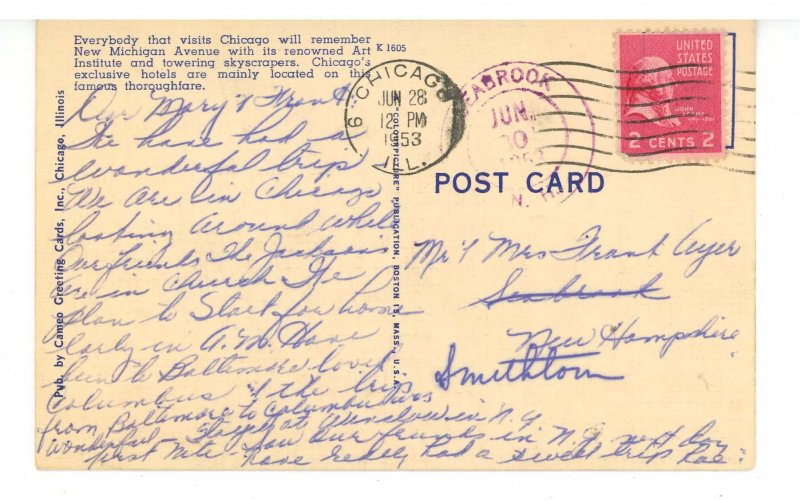 Everybody that visits Chicago will remember
New Michigan Avenue with its renowned Art
Institute and towering skyscrapers. Chicago's
exclusive hotels are mainly located on this
famous thoroughfare.
K 1605
Pub. by Cameo Greeting Cards, Inc., Chicago, Illinois
"COLOURPICTURE" PUBLICATION, BOSTON 15, MASS., U.S.A.
CHICAGO 9
JUN 28
12 PM
1953
ILL.
SEABROOK
JUN
30
N. H.
UNITED
STATES
POSTAGE
JOHN
2 CENTS 2
POST CARD
Dear Mary & Frank:
We have had a
wonderful trip
We are in Chicago
looking around while
our friends The Jacksons
are in Church We
plan to Start for home
early in A.M. Have
been to Baltimore
Columbus & the trip
from Baltimore to Columbus was
wonderful Stayed at in N.Y
first nite - Saw our friends in N.Y. next day
have really had a sweet trip
Mr & Mrs Frank Ayer
Seabrook
New Hampshire
Smithtown